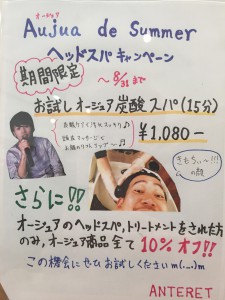 オージュア
Aujua de Summer
ヘッドスパキャンペーン
期間限定
～8/31まで
お試しオージュア炭酸スパ(15分)
¥1,080-
頭皮のマッサージで
お顔のリフトアップ～♪
きもちぃ～!!!
の顔
さらに!!
オージュアのヘッドスパ,トリートメントをされた方
のみ,オージュア商品全て10%オフ!!
この機会にぜひお試しくださいm(...)m
ANTERET